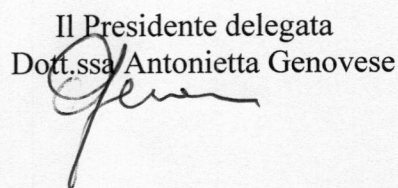 Il Presidente delegata
Dott.ssa Antonietta Genovese